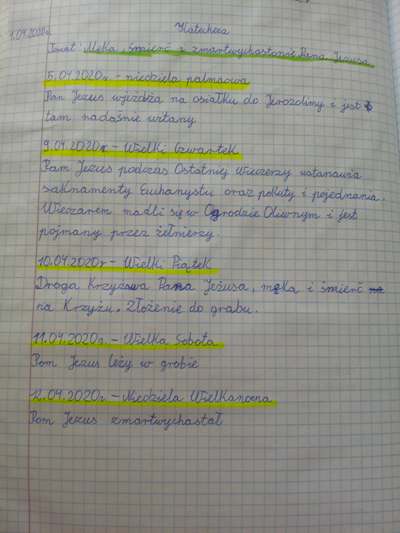 1.04.2020r. Katecheza
Temat: Męka, śmierć i zmartwychwstanie Pana Jezusa.
5.04.2020r. - niedziela palmowa
Pan Jezus wjeżdża na osiołku do Jerozolimy i jest
tam radośnie witany.
9.04.2020r - Wielki Czwartek
Pan Jezus podczas Ostatniej Wieczerzy ustanawia
sakramenty Euchanystii oraz pokuty i pojednania.
Wieczorem modli się w Ogrodzie Oliwnym i jest
pojmany przez żołnierzy.
10.04.2020r - Wielki Piątek
Droga Krzyżowa Pana Jezusa, męka i śmierć
na Krzyżu. Złożenie do grobu.
11.04.2020r. - Wielka Sobota
Pan Jezus leży w grobie
2.04.2020r. - Niedziela Wielkanocna
Pan Jezus zmartwychastał